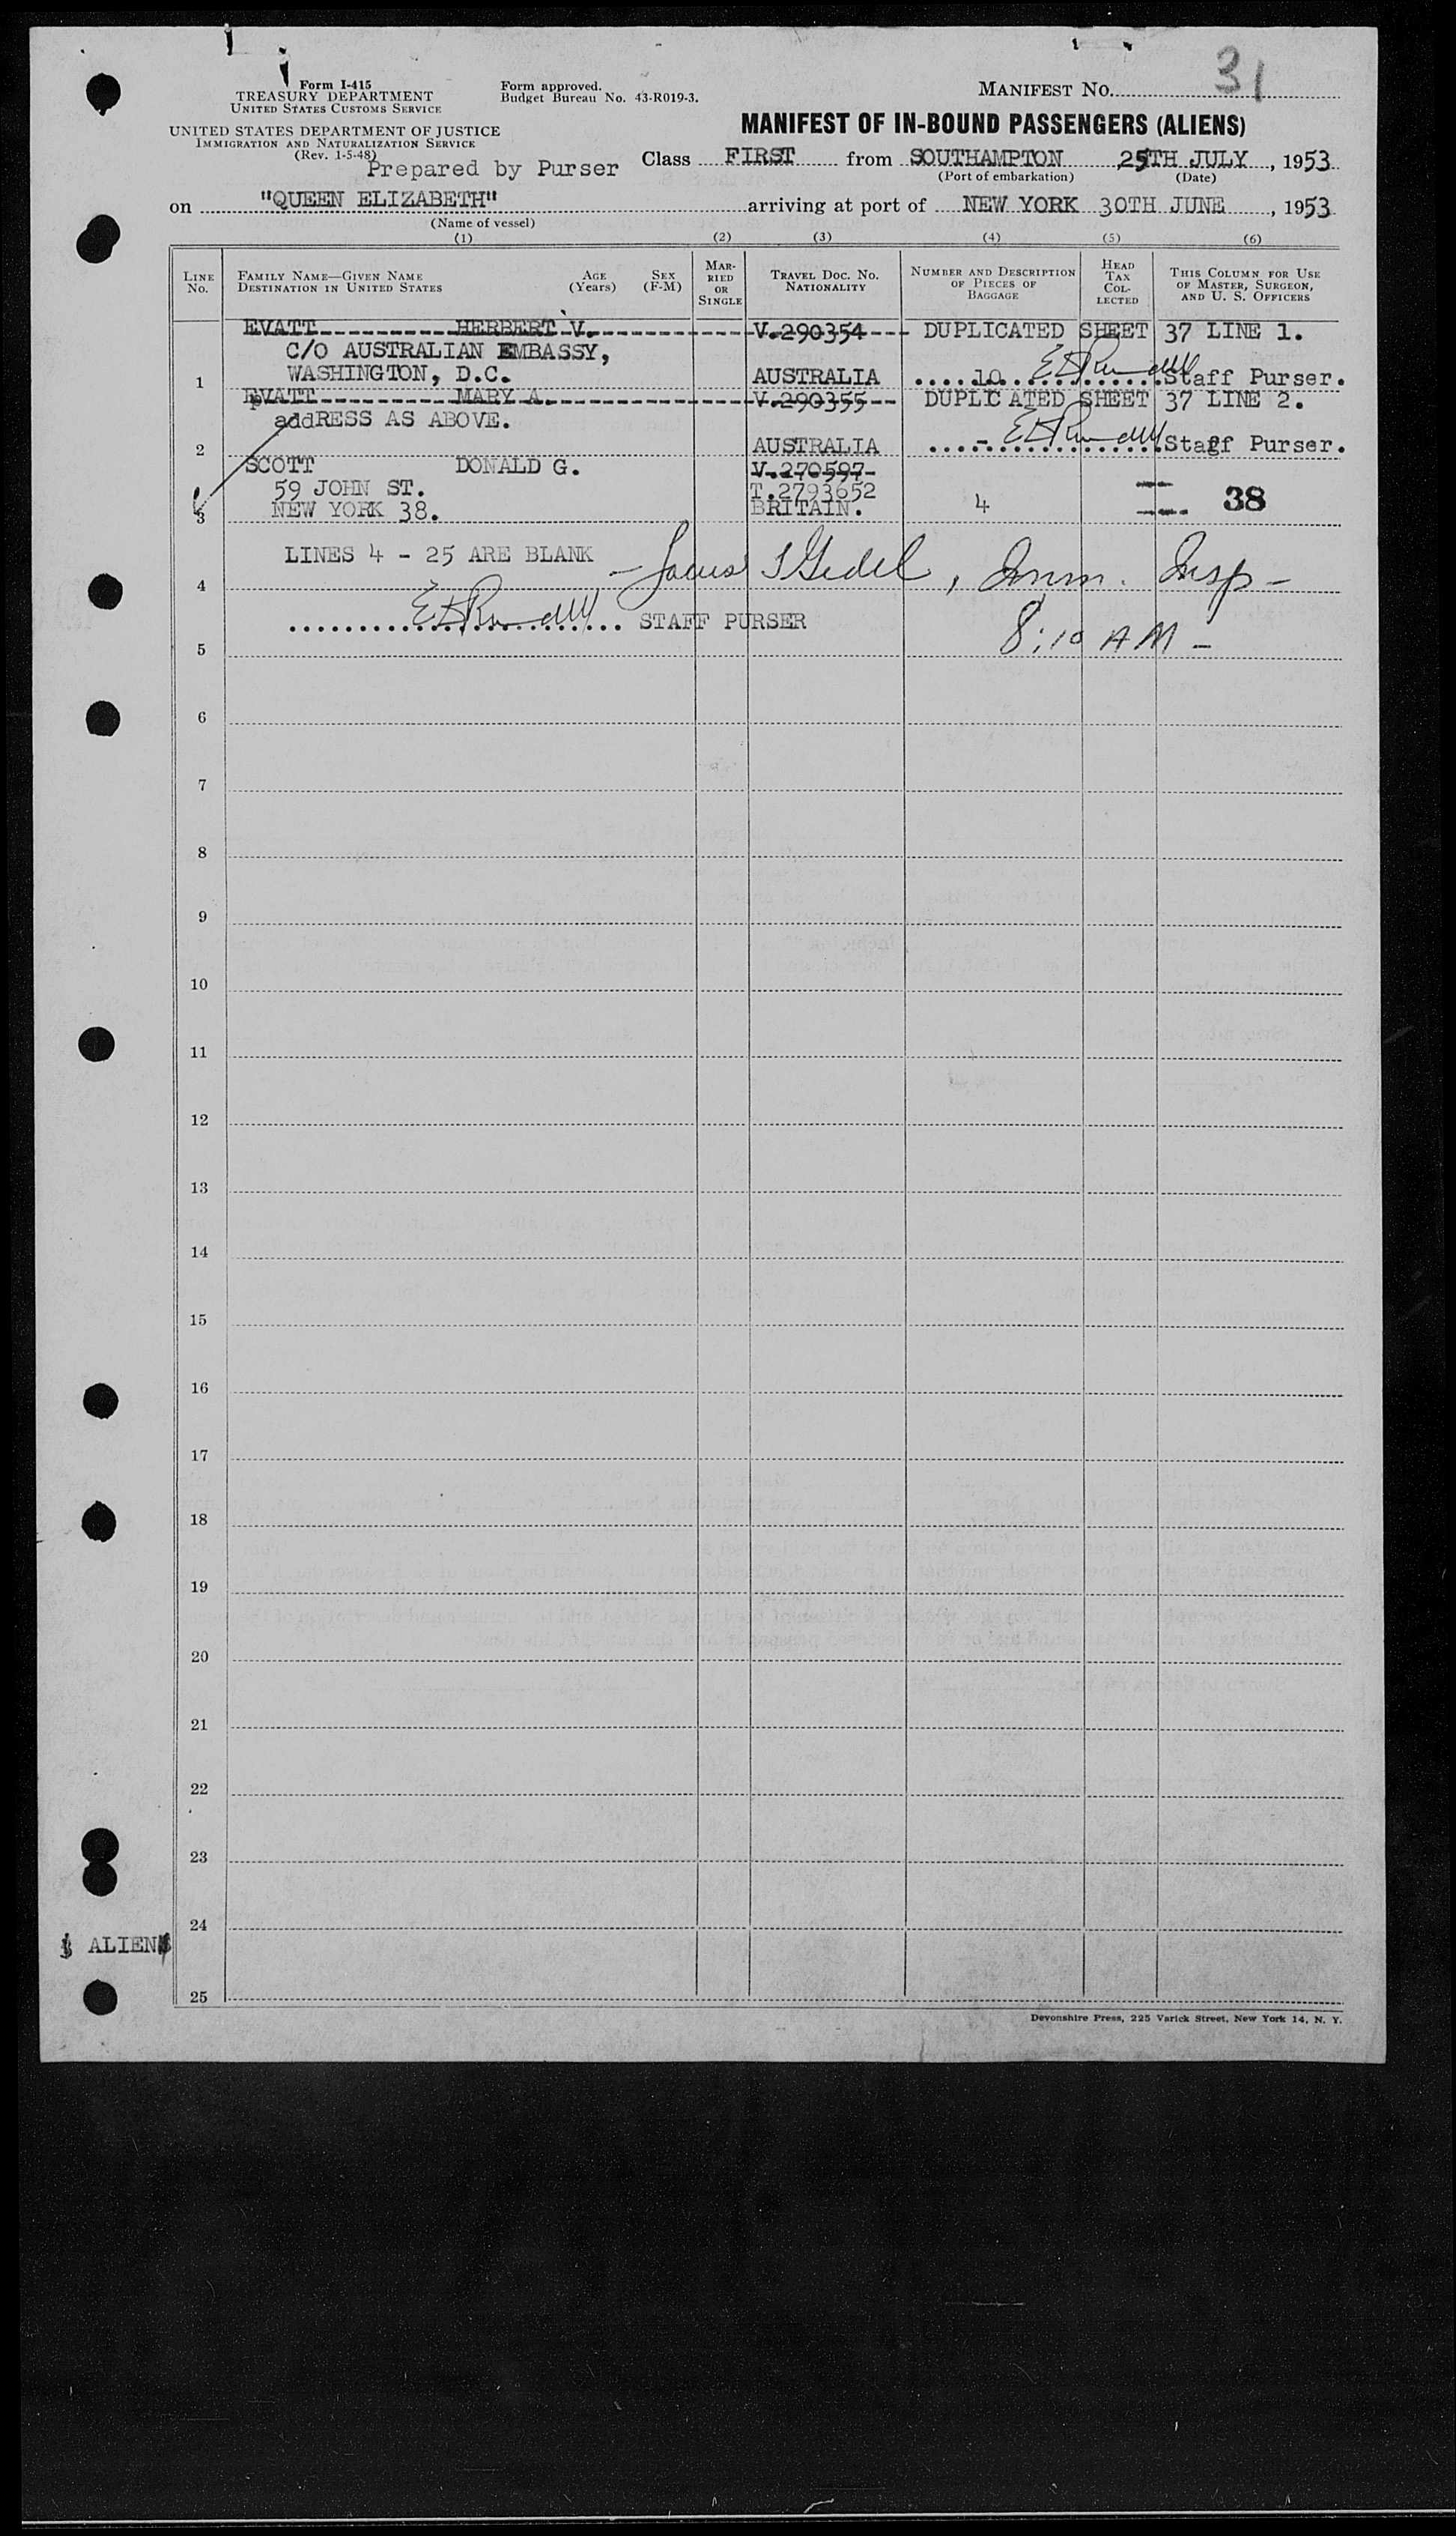 31
Form I-415
TREASURY DEPARTMENT
UNITED STATES CUSTOMS SERVICE
UNITED STATES DEPARTMENT OF JUSTICE
IMMIGRATION AND NATURALIZATION SERVICE
(Rev. 1-5-48)
Form approved.
Budget Bureau No. 43-R019-3.
MANIFEST NO.
MANIFEST OF IN-BOUND PASSENGERS (ALIENS)
Prepared by Purser
Class FIRST from SOUTHAMPTON 25TH JULY, 1953
(Port of embarkation) (Date)
on "QUEEN ELIZABETH" arriving at port of NEW YORK 30TH JUNE, 1953
(Name of vessel)
(1) (2) (3) (4) (5) (6)
LINE NO.
FAMILY NAME—GIVEN NAME
DESTINATION IN UNITED STATES
AGE (Years)
SEX (F-M)
MARRIED OR SINGLE
TRAVEL DOC. NO. NATIONALITY
NUMBER AND DESCRIPTION OF PIECES OF BAGGAGE
HEAD TAX COLLECTED
THIS COLUMN FOR USE OF MASTER, SURGEON, AND U. S. OFFICERS
EVATT HERBERT V. V.290354 DUPLICATED SHEET 37 LINE 1.
C/O AUSTRALIAN EMBASSY,
1 WASHINGTON, D.C. AUSTRALIA 10 Staff Purser.
EVATT MARY A. V.290355 DUPLICATED SHEET 37 LINE 2.
addRESS AS ABOVE.
2 AUSTRALIA - Staff Purser.
SCOTT DONALD G. V.270597
59 JOHN ST. T.2793652
3 NEW YORK 38. BRITAIN. 4 38
LINES 4 - 25 ARE BLANK
4 , Imm. Insp -
STAFF PURSER 8:10 AM -
5
6
7
8
9
10
11
12
13
14
15
16
17
18
19
20
21
22
23
24
ALIEN
25
Devonshire Press, 225 Varick Street, New York 14, N. Y.